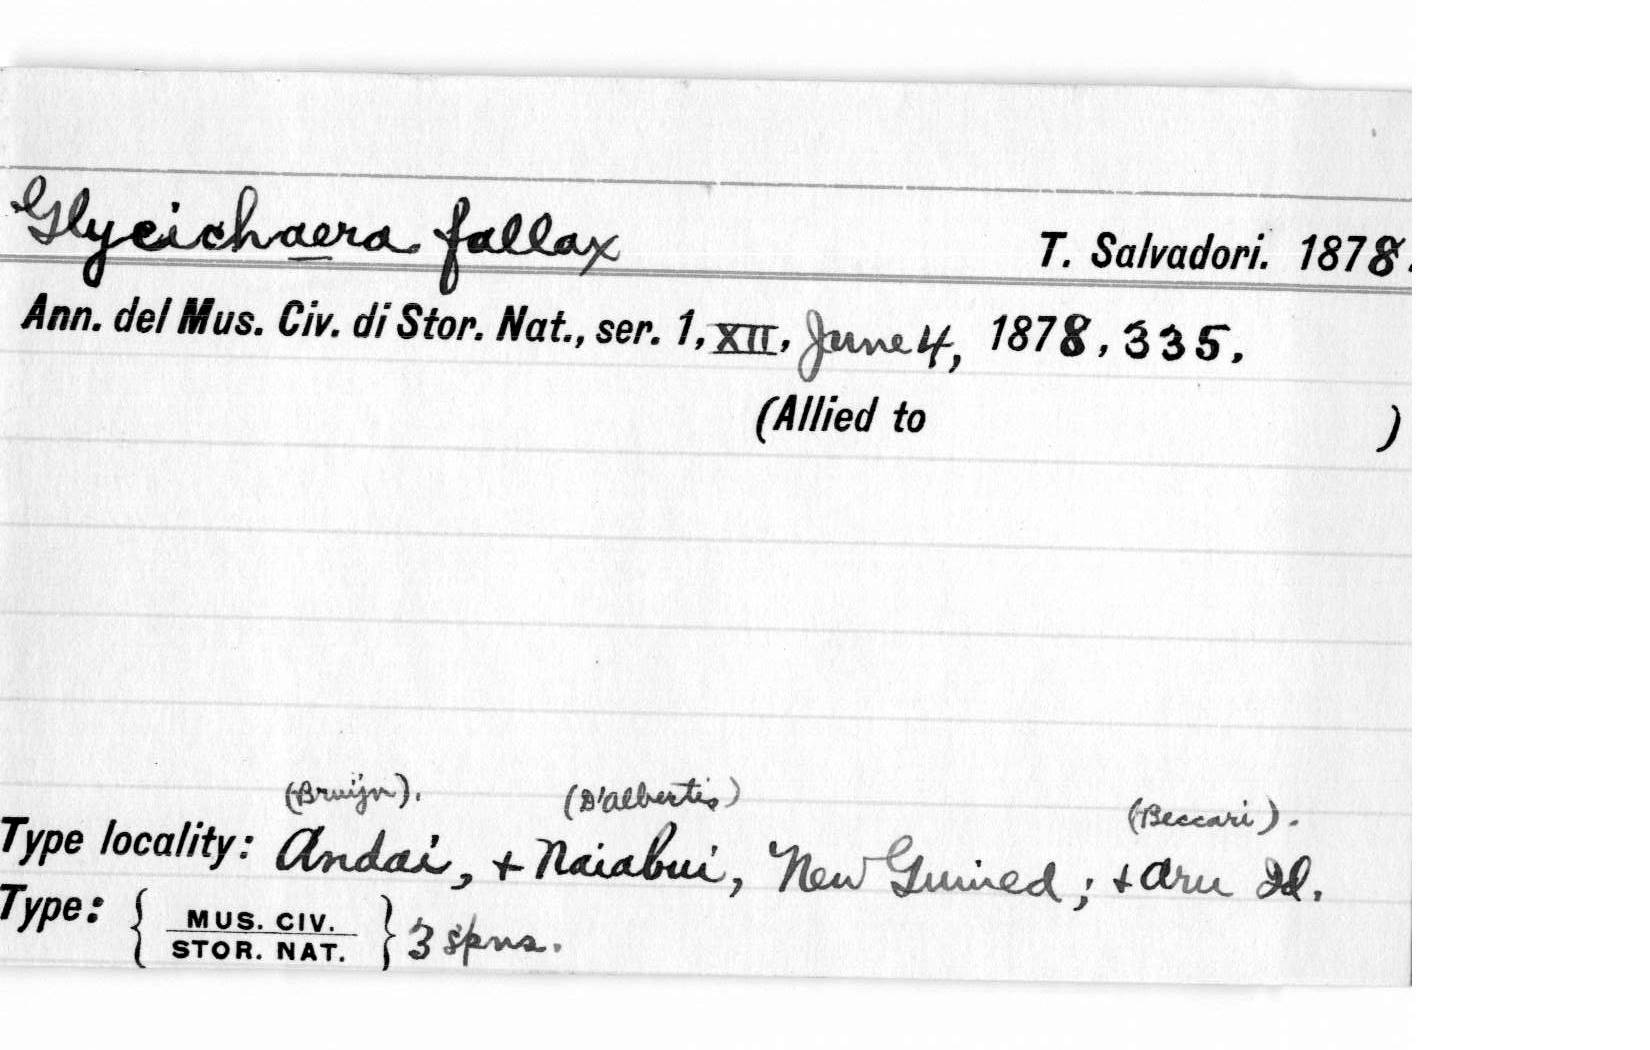 Glycichaera fallax T. Salvadori. 1878.
Ann. del Mus. Civ. di Stor. Nat., ser. 1, XII, June 4, 1878, 335.
(Allied to )
(Bruijn). (D'Albertis) (Beccari).
Type locality: Andai, + Naiabui, New Guinea; + Aru Id.
Type: { MUS. CIV.
STOR. NAT. } 3 spns.